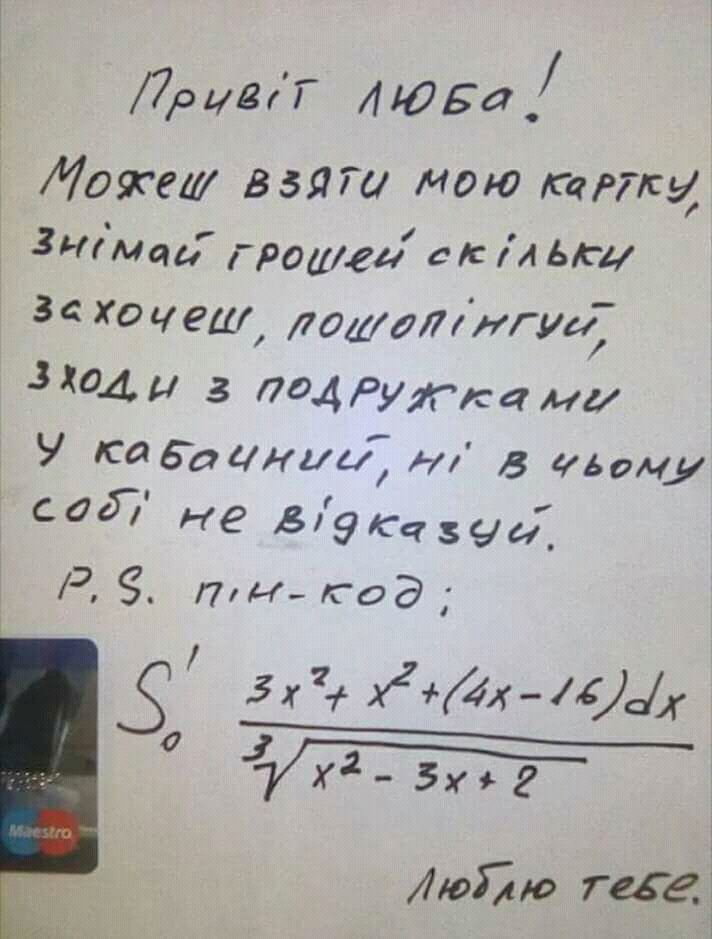 Привіт люба!
Можеш взяти мою картку,
знімай грошей скільки
захочеш, пошопінгуй,
зходи з подружками
у кабачний, ні в чьому
собі не відказуй.
P.S. пін-код:
S¹₀ 3x² + x² + (4x - 16)dx
∛x² - 3x + 2
Maestro
Люблю тебе.